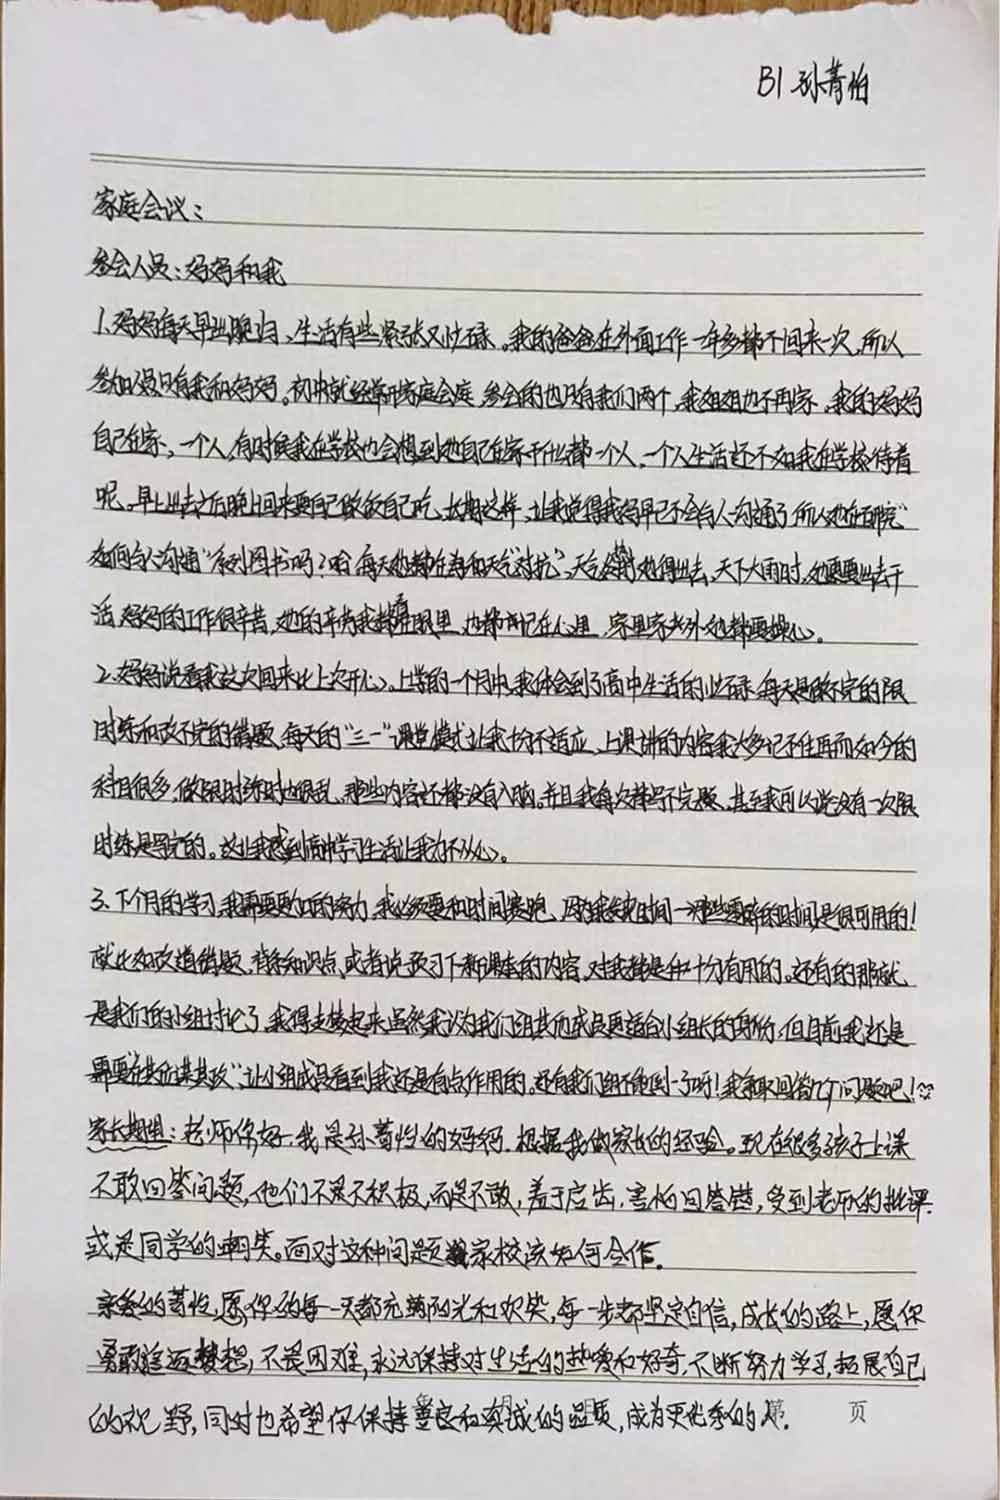 B1 孙菁怡
家庭会议：
参会人员：妈妈和我
1.妈妈每天早出晚归、生活有些紧张又忙碌。我的爸爸在外面工作一年多都不回来一次,所以
参加人员只有我和妈妈。初中就经常开家庭会庭,参会的也只有我们两个,我姐姐也不再家,我的妈妈
自己在家,一个人,有时候我在学校也会想到她自己在家干什么都一个人,一个人生活还不如我在学校待着
呢。早上出去之后晚上回来要自己做饭自己吃,长期这样,让我觉得我妈早已不会与人沟通了,所以她在研究“
如何与人沟通”系列图书吗?哈,每天她都在为和天气“对抗”,天气冷时她得出去,天下大雨时,她更要出去干
活,妈妈的工作很辛苦,她的辛劳我都看在眼里,也都铭记在心里,家里家外她都要操心。
2.妈妈说看我这次回来比上次开心。上学的一个月中,我体会到了高中生活的忙碌,每天是做不完的限
时练和改不完的错题,每天的“三一”课堂模式让我十分不适应,上课讲的内容我大多记不住,再而如今的
科目很多,做限时练时也很乱,那些内容还都没有入脑,并且我每次都写不完题,甚至我可以说没有一次限
时练是写完的。这让我感到高中学习生活让我力不从心。
3.下个月的学习,我需要更加的努力,我必须要和时间赛跑,因为我缺时间——那些零碎的时间,是很可用的!
就比如改道错题,背条知识点,或者说预习下新课本的内容,对我都是十分有用的。还有的那就
是我们的小组讨论了,我得支棱起来,虽然我认为我们组其他成员更适合小组长的身份,但目前我还是
需要“在其位谋其政”,让小组成员看到我还是有点作用的。还有我们组不能倒一了呀!我争取回答几个问题吧!
家长期望:老师你好,我是孙菁怡的妈妈.根据我做家长的经验。现在很多孩子上课
不敢回答问题,他们不是不积极,而是不敢,羞于启齿,害怕回答错,受到老师的批评.
或是同学的嘲笑。面对这种问题家校该如何合作。
亲爱的菁怡,愿你的每一天都充满阳光和欢笑,每一步都坚定自信,成长的路上,愿你
勇敢追逐梦想,不畏困难,永远保持对生活的热爱和好奇,不断努力学习,拓展自己
的视野,同时也希望你保持善良和真诚的品质,成为更优秀的人.
第 页